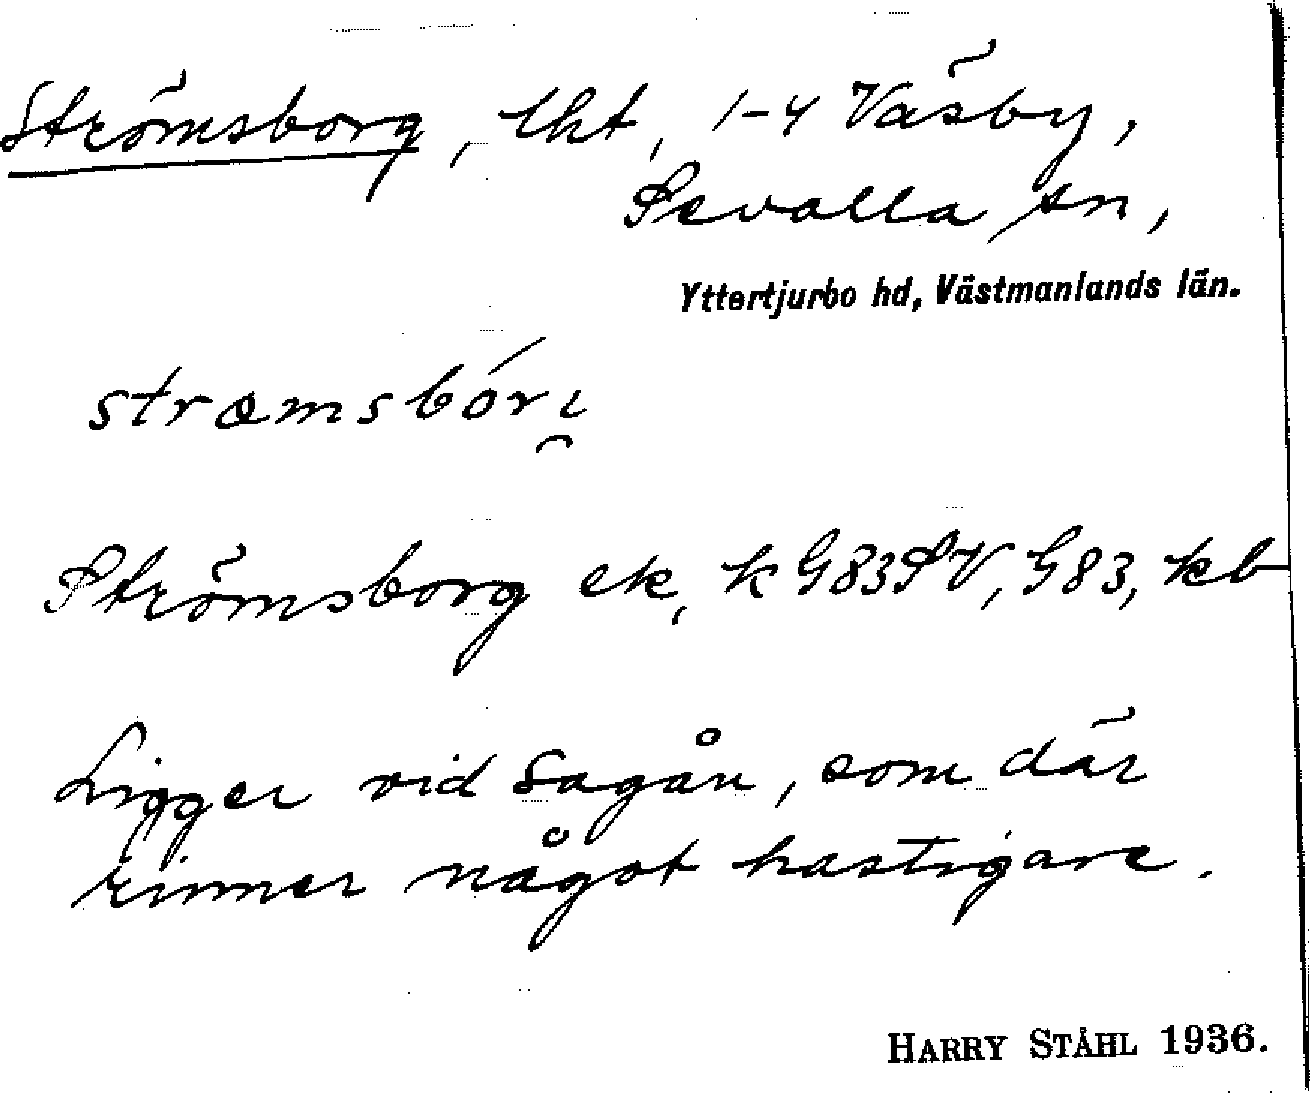 Strömsborg, lht, 1-4 Väsby,
Sevalla sn,
Yttertjurbo hd, Västmanlands län.
strömsbórι
Strömsborg ek, k G83SV, G83, kb
Ligger vid Sagån, som där
rinner något hastigare.
HARRY STÅHL 1936.